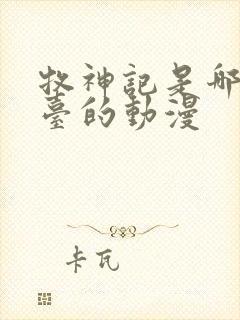 牧神記是哪
臺的動漫
卡瓦